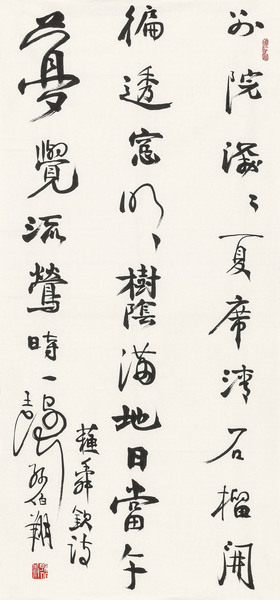 別院深〻夏席清石榴開
徧透窓明樹陰滿地日當午
夢覺流鶯時一聲
蘇舜欽詩
孫伯翔